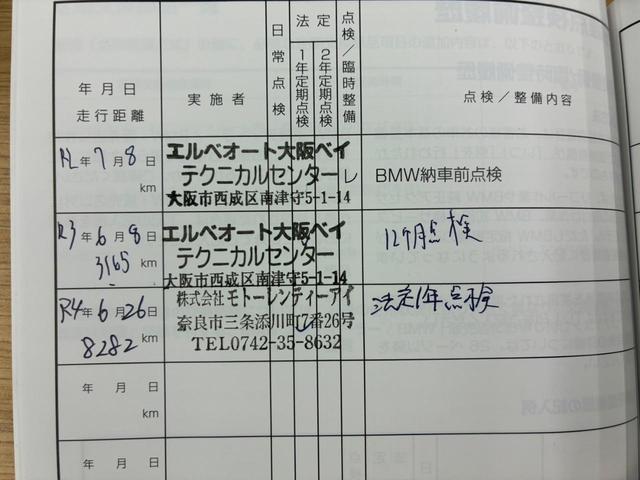 年月日
走行距離
実施者
日常点検
法定
1年定期点検
2年定期点検
点検/臨時整備
点検/整備内容
年7月8日
km
エルベオート大阪ベイ
テクニカルセンター
レ
大阪市西成区南津守5-1-14
BMW納車前点検
R3年6月8日
3165 km
エルベオート大阪ベイ
テクニカルセンター
大阪市西成区南津守5-1-14
12ヶ月点検
R4年6月26日
8282 km
株式会社モトーレンティーアイ
奈良市三条添川町7番26号
TEL0742-35-8632
法定1年点検
年月日
km
年月日